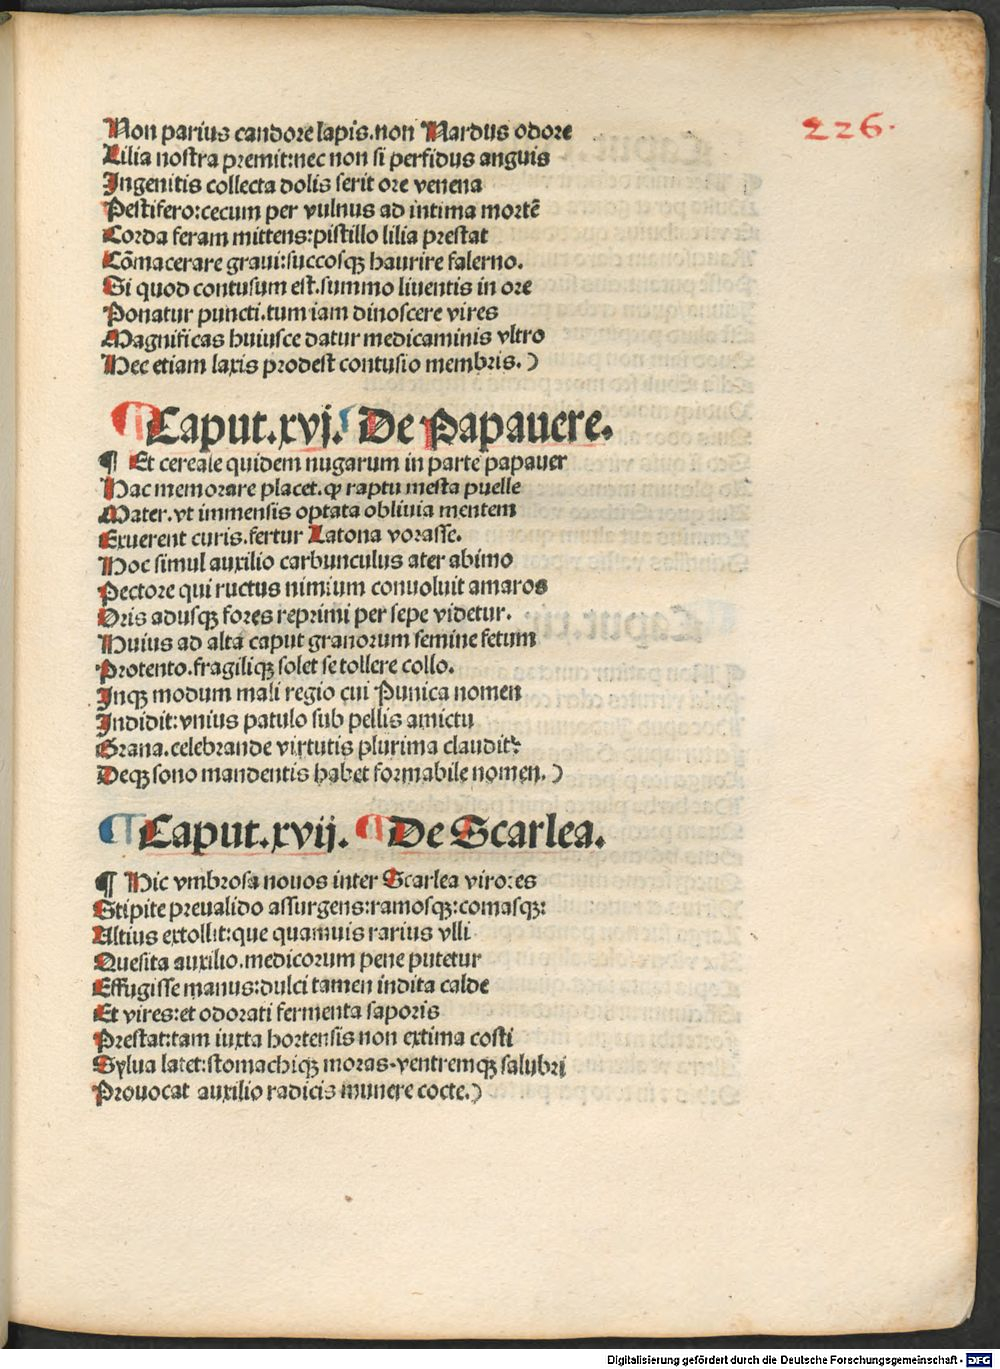 226.
Non parius candore lapis.non Nardus odore
Lilia nostra premit:nec non si perfidus anguis
Ingenitis collecta dolis serit ore venena
Pestifero:cecum per vulnus ad intima mortē
Corda feram mittens:pistillo lilia prestat
Cōmacerare graui:succosqꝫ haurire falerno.
Si quod contusum est.summo liuentis in ore
Ponatur puncti.tum iam dinoscere vires
Magnificas huiusce datur medicaminis vltro
Hec etiam laxis prodest contusio membris.)
¶ Caput.xvj. De Papauere.
¶ Et cereale quidem nugarum in parte papauer
Hac memorare placet.ꝙ raptu mesta puelle
Mater.vt immensis optata obliuia mentem
Exuerent curis.fertur Latona vorasse.
Hoc simul auxilio carbunculus ater abimo
Pectore qui ructus nimium conuoluit amaros
Oris adusqꝫ fores reprimi per sepe videtur.
Huius ad alta caput granorum semine fetum
Protento.fragiliqꝫ solet se tollere collo.
Inqꝫ modum mali regio cui Punica nomen
Indidit:vnius patulo sub pellis amictu
Grana.celebrande virtutis plurima claudit:
Deqꝫ sono mandentis habet formabile nomen.)
¶ Caput.xvij. ¶ De Scarlea.
¶ Hic vmbrosa nouos inter Scarlea virores
Stipite preualido assurgens:ramosqꝫ:comasqꝫ:
Altius extollit:que quamuis rarius vlli
Quesita auxilio.medicorum pene putetur
Effugisse manus:dulci tamen indita calde
Et vires:et odorati fermenta saporis
Prestat:tam iuxta hortensis non extima costi
Sylua latet:stomachiqꝫ moras.ventremqꝫ salubri
Prouocat auxilio radicis munere cocte.)
Digitalisierung gefördert durch die Deutsche Forschungsgemeinschaft - DFG